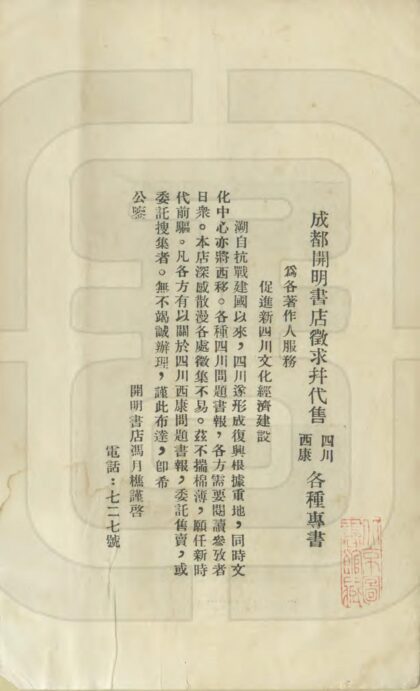 成都開明書店徵求幷代售四川西康各種專書
爲各著作人服務
促進新四川文化經濟建設
溯自抗戰建國以來，四川遂形成復興根據重地，同時文
化中心亦將西移。各種四川問題書報，各方需要閱讀參攷者
日衆。本店深感散漫各處徵集不易。茲不揣棉薄，願任新時
代前驅。凡各方有以關於四川西康問題書報，委託售賣，或
委託搜集者。無不竭誠辦理，謹此布達，卽希
公鑒
開明書店馮月樵謹啓
電話：七二七號